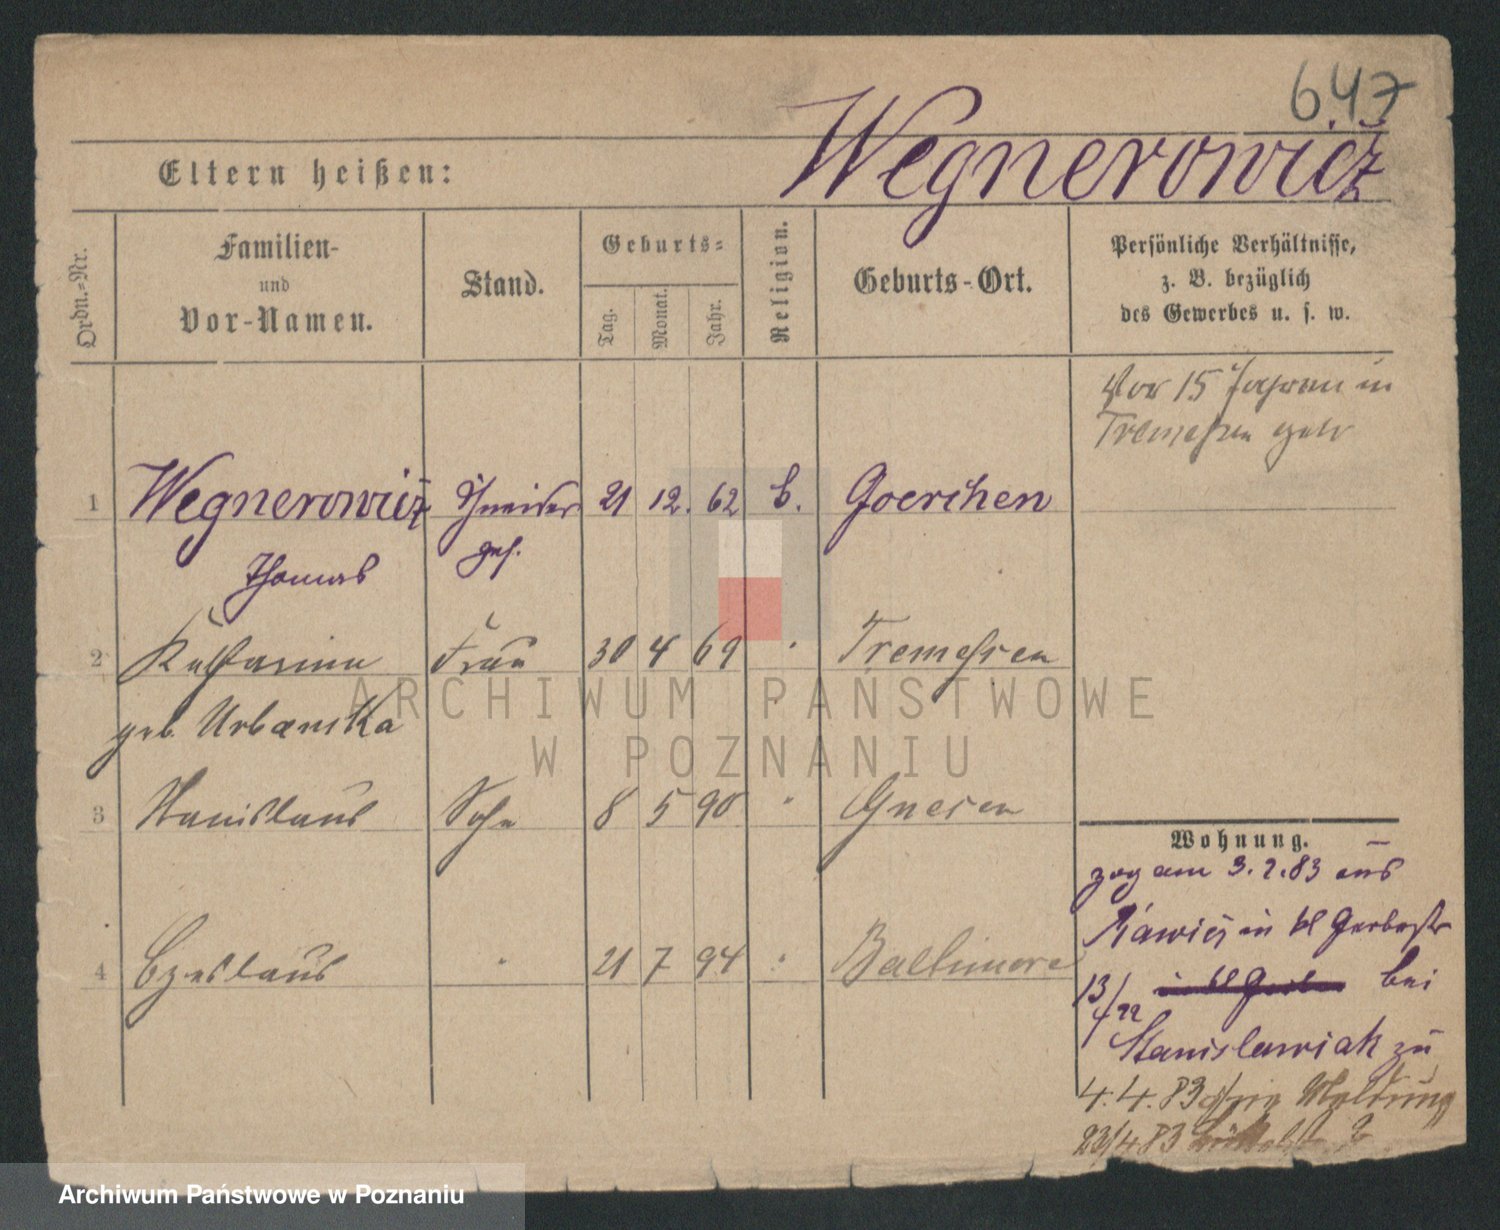 647
Wegnerowicz
Eltern heißen:
Ordn.=Nr.
Familien-
und
Vor-Namen.
Stand.
Geburts=
Tag.
Monat.
Jahr.
Religion.
Geburts-Ort.
Persönliche Verhältnisse,
z. B. bezüglich
des Gewerbes u. s. w.
Vor 15 Jahren in
Tremessen
1 Wegnerowicz Schneider 21 12. 62 Goerchen
ges.
Thomas
2 Katharina Frau 30 4 69 " Tremessen
geb. Urbanska
3 Stanislaus Sohn 8 5 90 " Gnesen
4 Czeslaus " 21 7 94 " Baltimore
Wohnung.
zog am 3.2.83 aus
Rawicz in kl Gerberstr
13/ bei
Stanislawiak zu
4.4.83 Meldung
23/4 83
ARCHIWUM PAŃSTWOWE
W POZNANIU
Archiwum Państwowe w Poznaniu